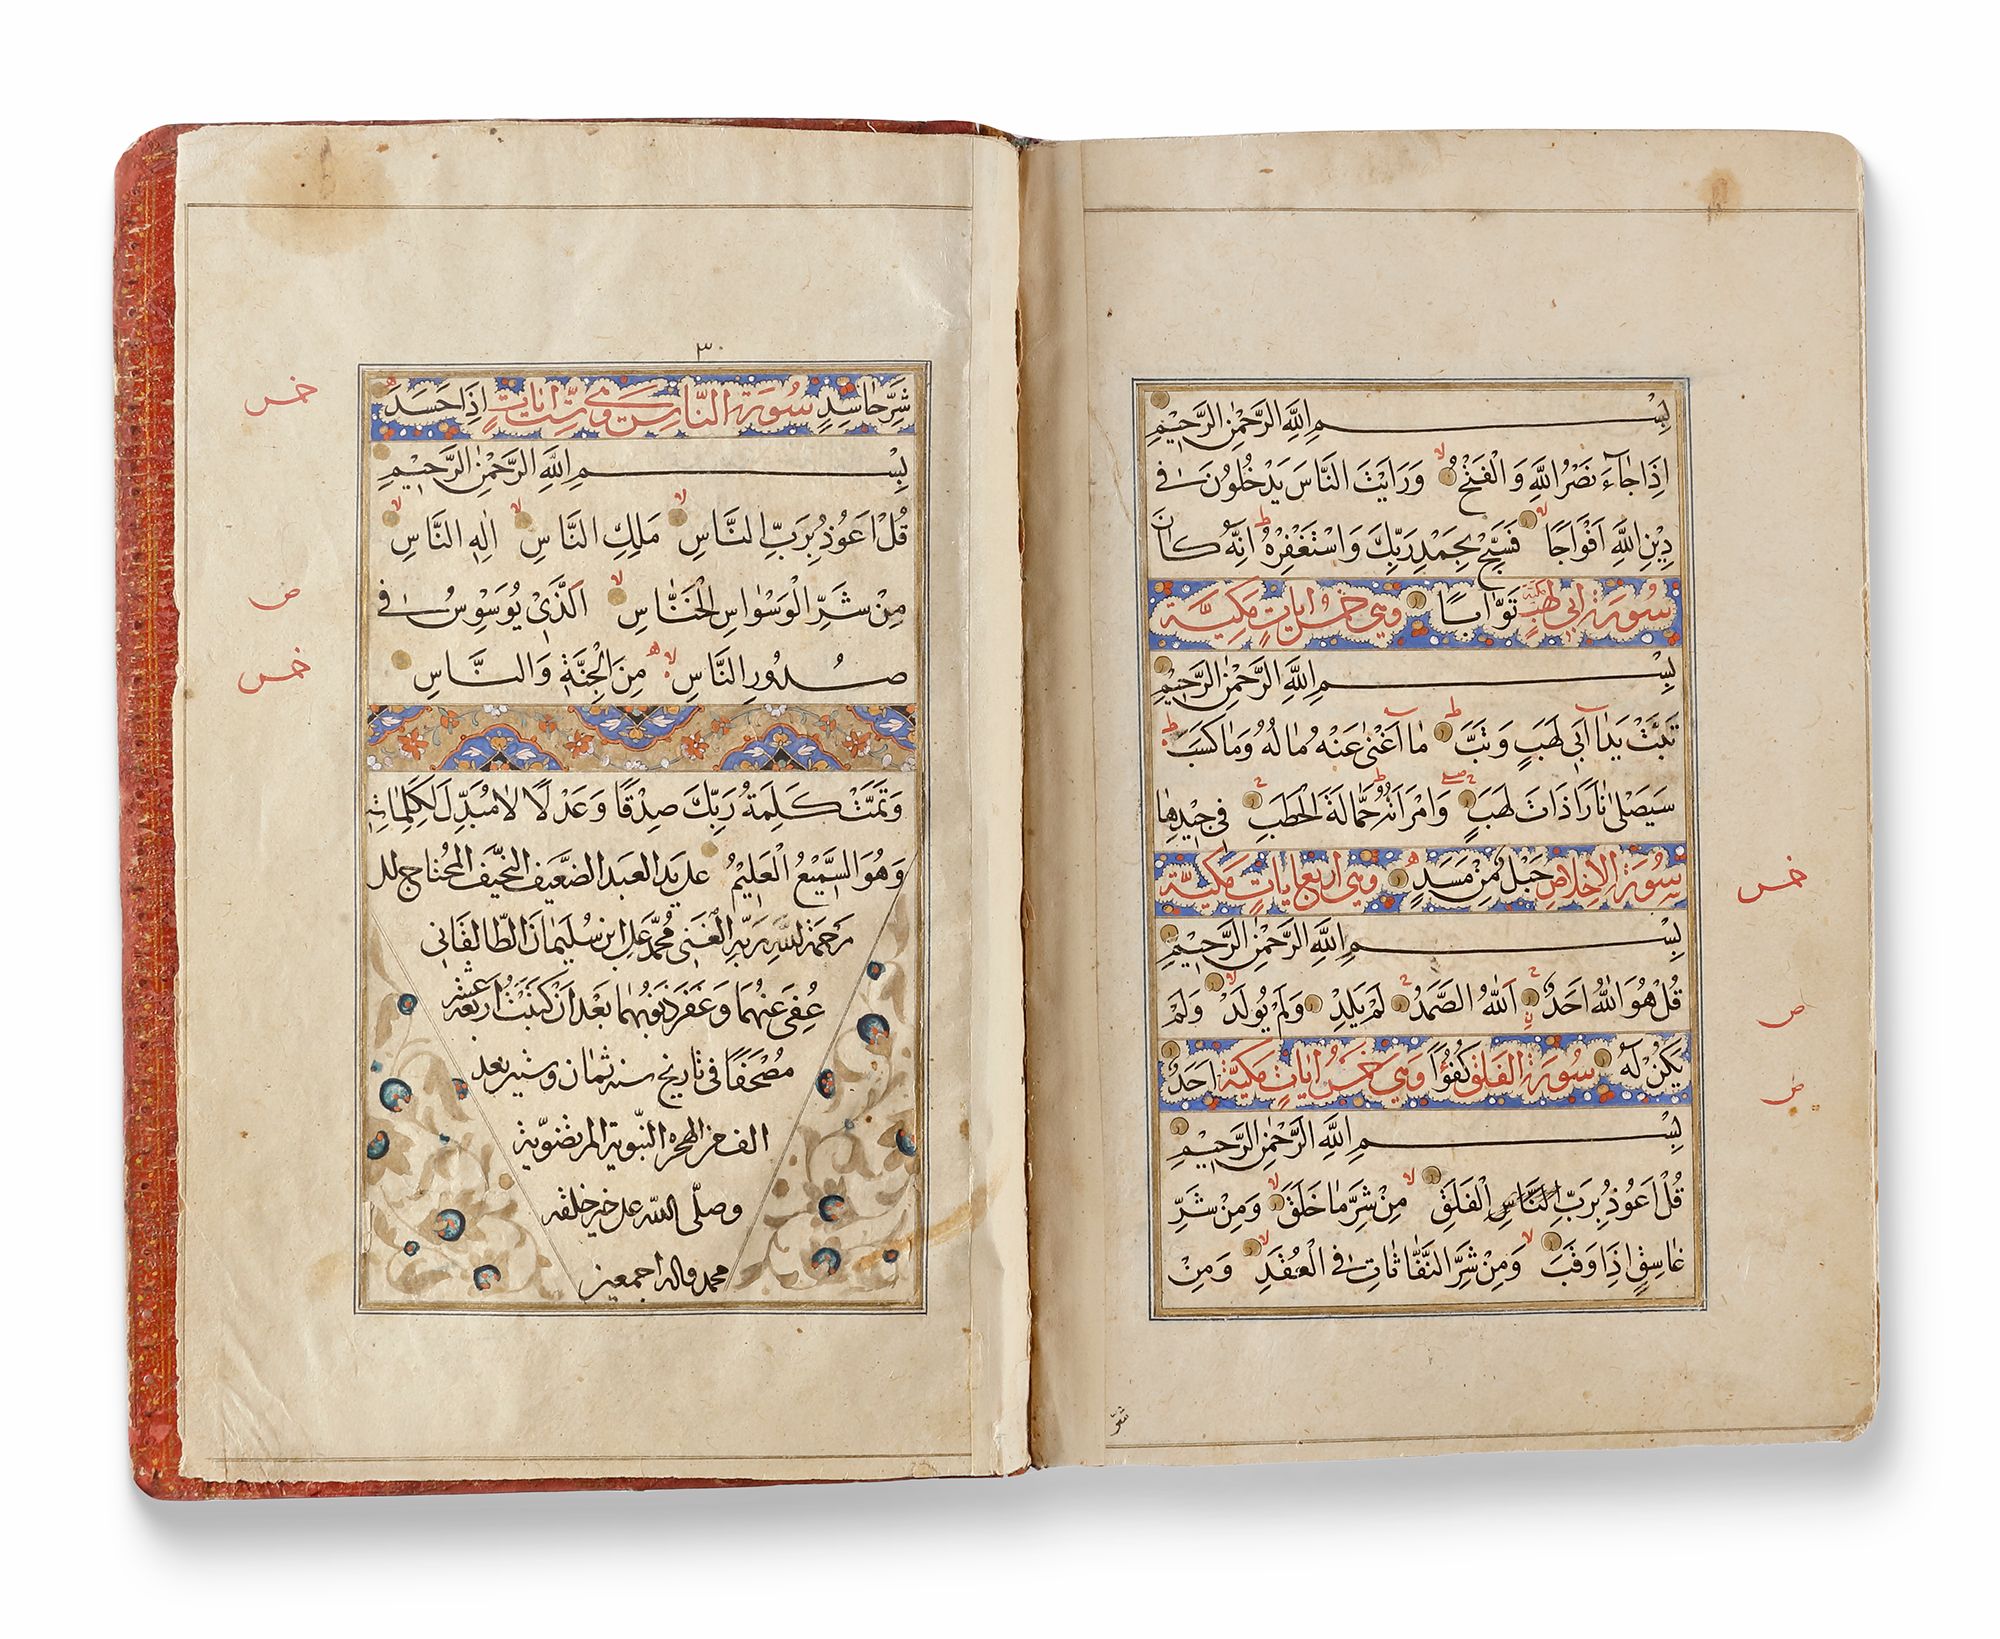 بِسْمِ اللَّهِ الرَّحْمٰنِ الرَّحِيْمِ
اِذَا جَاءَ نَصْرُ اللَّهِ وَالْفَتْحُ وَرَاَيْتَ النَّاسَ يَدْخُلُوْنَ فِىْ
دِيْنِ اللَّهِ اَفْوَاجًا فَسَبِّحْ بِحَمْدِ رَبِّكَ وَاسْتَغْفِرْهُ اِنَّهُ كَانَ
سُورَة ابى لهب تَوَّابًا وهي خمس ايات مكية
بِسْمِ اللَّهِ الرَّحْمٰنِ الرَّحِيْمِ
تَبَّتْ يَدَا اَبِىْ لَهَبٍ وَتَبَّ مَا اَغْنٰى عَنْهُ مَالُهُ وَمَا كَسَبَ
سَيَصْلٰى نَارًا ذَاتَ لَهَبٍ وَامْرَاَتُهُ حَمَّالَةَ الْحَطَبِ فِىْ جِيْدِهَا
سُورَة الاخلاص حَبْلٌ مِنْ مَسَدٍ وهي اربع ايات مكية
بِسْمِ اللَّهِ الرَّحْمٰنِ الرَّحِيْمِ
قُلْ هُوَ اللَّهُ اَحَدٌ اَللَّهُ الصَّمَدُ لَمْ يَلِدْ وَلَمْ يُوْلَدْ وَلَمْ
يَكُنْ لَهُ سُورَة الفلق كُفُوًا وهي خمس ايات مكية اَحَدٌ
بِسْمِ اللَّهِ الرَّحْمٰنِ الرَّحِيْمِ
قُلْ اَعُوْذُ بِرَبِّ النَّاسِ الْفَلَقِ مِنْ شَرِّ مَا خَلَقَ وَمِنْ شَرِّ
غَاسِقٍ اِذَا وَقَبَ وَمِنْ شَرِّ النَّفَّاثَاتِ فِى الْعُقَدِ وَمِنْ
خمس
ص
ص
٣٠
شَرِّ حَاسِدٍ سُورَة الناس وهي ست ايات اِذَا حَسَدَ
بِسْمِ اللَّهِ الرَّحْمٰنِ الرَّحِيْمِ
قُلْ اَعُوْذُ بِرَبِّ النَّاسِ مَلِكِ النَّاسِ اِلٰهِ النَّاسِ
مِنْ شَرِّ الْوَسْوَاسِ الْخَنَّاسِ اَلَّذِىْ يُوَسْوِسُ فِىْ
صُدُوْرِ النَّاسِ مِنَ الْجِنَّةِ وَالنَّاسِ
وَتَمَّتْ كَلِمَةُ رَبِّكَ صِدْقًا وَعَدْلًا لَا مُبَدِّلَ لِكَلِمَاتِهِ
وَهُوَ السَّمِيْعُ الْعَلِيْمُ على يد العبد الضعيف النحيف المحتاج الى
رحمة الله ربه الغنى محمد على ابن سليمان الطالقانى
عفى عنهما وغفر ذنوبهما بعد ان كتبت اربعة عشر
مصحفا فى تاريخ سنه ثمان وستين بعد
الف من الهجرة النبوية المرتضوية
وصلى الله على خير خلقه
محمد واله اجمعين
خمس
ص
خمس